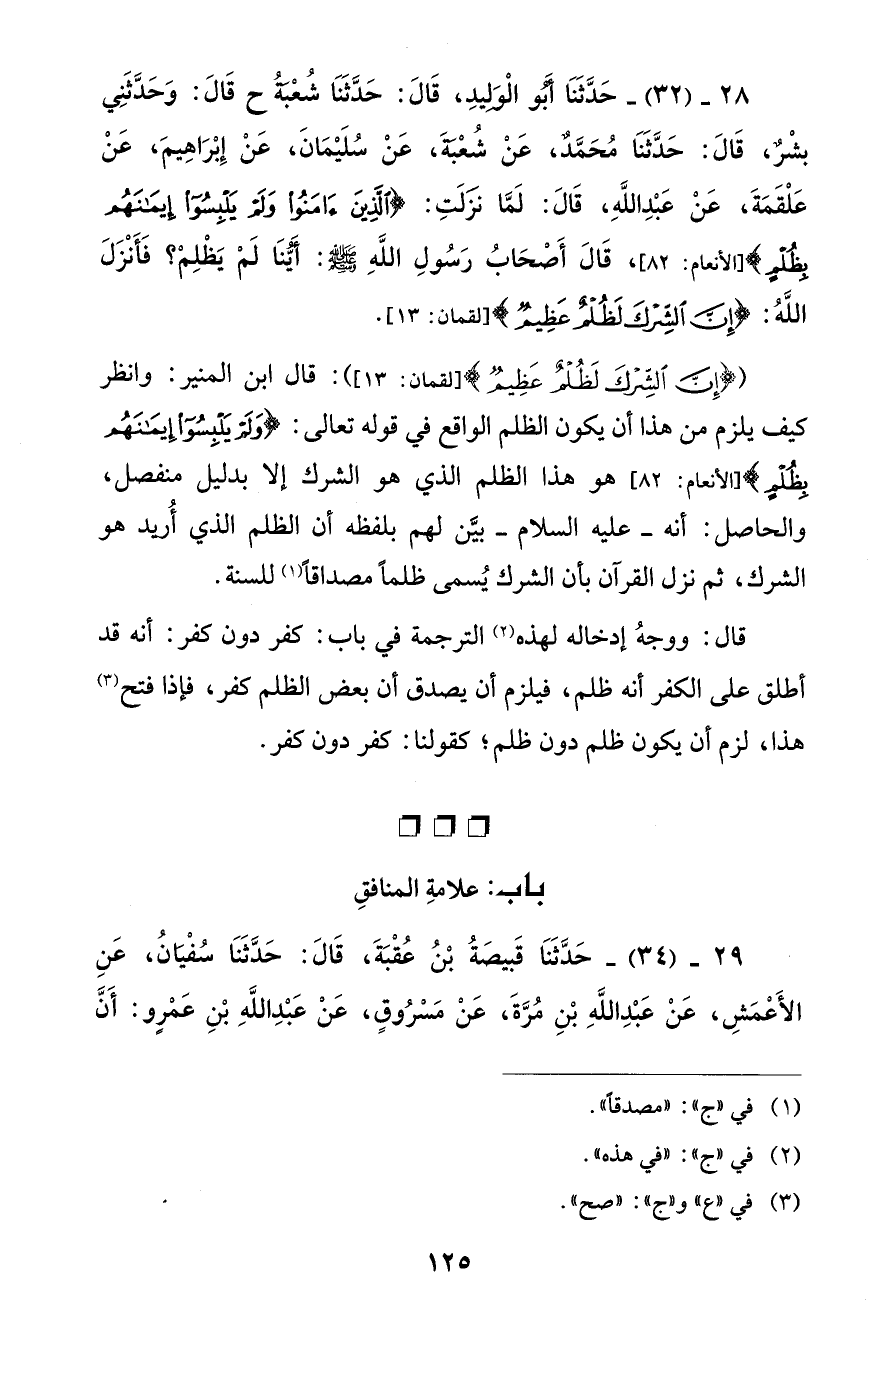 ٢٨ ـ (٣٢) ـ حَدَّثَنَا أَبُو الْوَلِيدِ، قَالَ: حَدَّثَنَا شُعْبَةُ ح قَالَ: وَحَدَّثَنِي
بِشْرٌ، قَالَ: حَدَّثَنَا مُحَمَّدٌ، عَنْ شُعْبَةَ، عَنْ سُلَيْمَانَ، عَنْ إِبْرَاهِيمَ، عَنْ
عَلْقَمَةَ، عَنْ عَبْدِاللَّهِ، قَالَ: لَمَّا نَزَلَتِ: ﴿ٱلَّذِينَ ءَامَنُوا۟ وَلَمْ يَلْبِسُوٓا۟ إِيمَـٰنَهُم
بِظُلْمٍ﴾[الأنعام: ٨٢]، قَالَ أَصْحَابُ رَسُولِ اللَّهِ ﷺ: أَيُّنَا لَمْ يَظْلِمْ؟ فَأَنْزَلَ
اللَّهُ: ﴿إِنَّ ٱلشِّرْكَ لَظُلْمٌ عَظِيمٌ﴾[لقمان: ١٣].
(﴿إِنَّ ٱلشِّرْكَ لَظُلْمٌ عَظِيمٌ﴾[لقمان: ١٣]): قال ابن المنير: وانظر
كيف يلزم من هذا أن يكون الظلم الواقع في قوله تعالى: ﴿وَلَمْ يَلْبِسُوٓا۟ إِيمَـٰنَهُم
بِظُلْمٍ﴾[الأنعام: ٨٢] هو هذا الظلم الذي هو الشرك إلا بدليل منفصل،
والحاصل: أنه ـ عليه السلام ـ بيَّن لهم بلفظه أن الظلم الذي أُريد هو
الشرك، ثم نزل القرآن بأن الشرك يُسمى ظلماً مصداقاً(١) للسنة.
قال: ووجهُ إدخاله لهذه(٢) الترجمة في باب: كفر دون كفر: أنه قد
أطلق على الكفر أنه ظلم، فيلزم أن يصدق أن بعض الظلم كفر، فإذا فتح(٣)
هذا، لزم أن يكون ظلم دون ظلم؛ كقولنا: كفر دون كفر.
باب: علامةِ المنافقِ
٢٩ ـ (٣٤) ـ حَدَّثَنَا قَبِيصَةُ بْنُ عُقْبَةَ، قَالَ: حَدَّثَنَا سُفْيَانُ، عَنِ
الأَعْمَشِ، عَنْ عَبْدِاللَّهِ بْنِ مُرَّةَ، عَنْ مَسْرُوقٍ، عَنْ عَبْدِاللَّهِ بْنِ عَمْرٍو: أَنَّ
(١) في «ج»: «مصدقاً».
(٢) في «ج»: «في هذه».
(٣) في «ع» و«ج»: «صح».
١٢٥